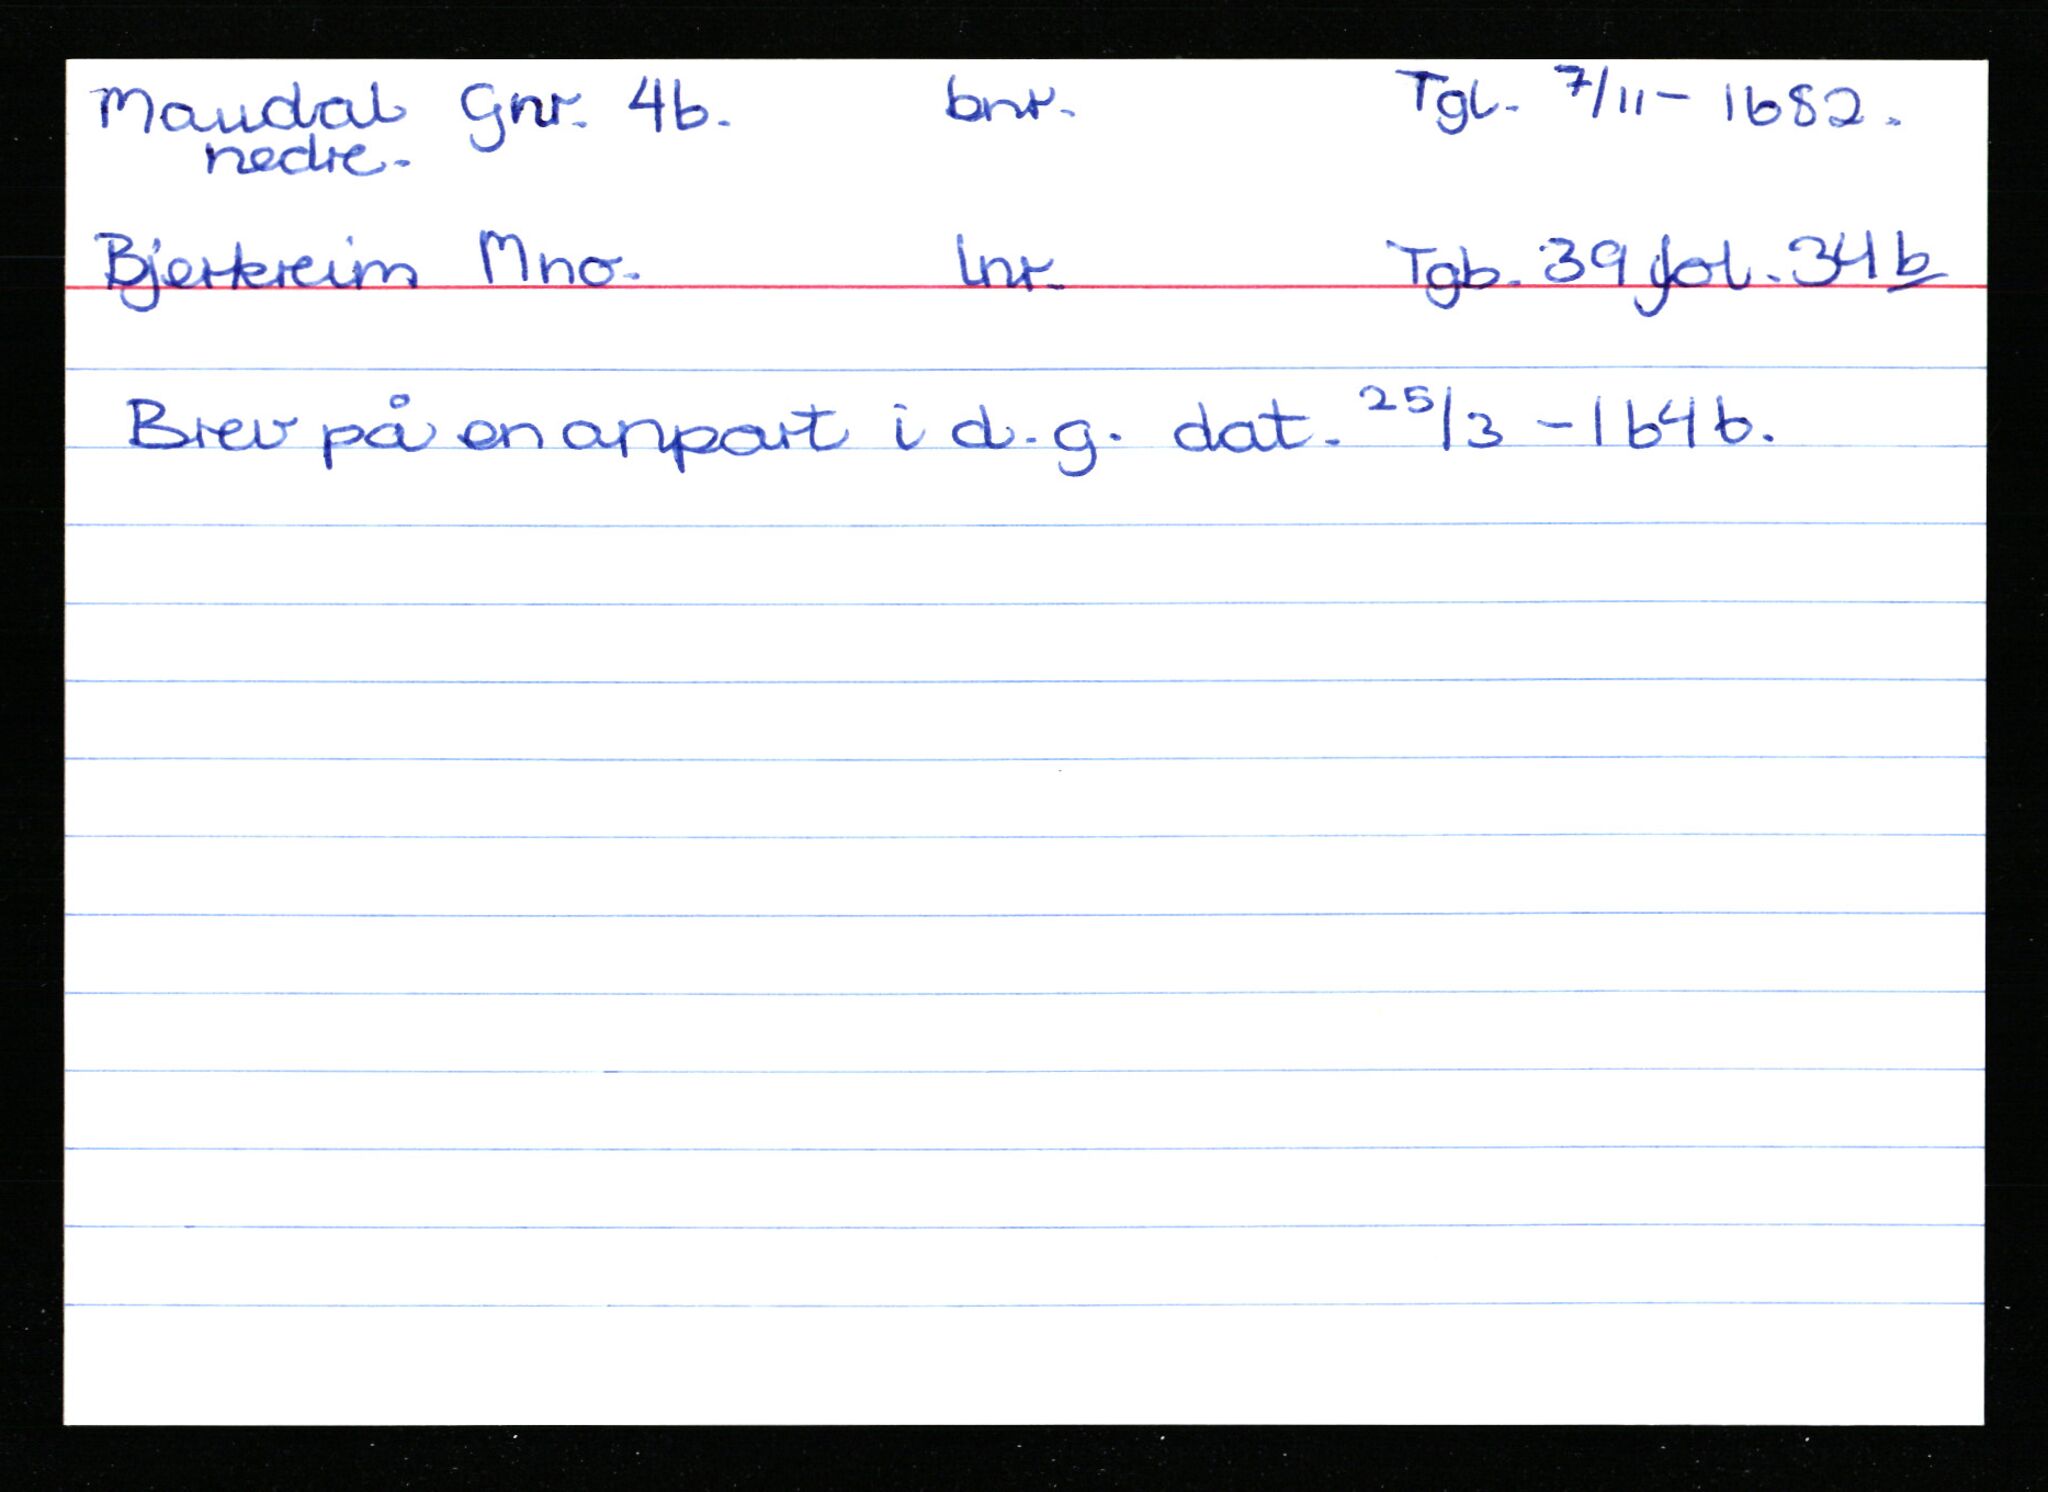 Maudal Gnr. 46. bnr. Tgl. 7/11 - 1682.
nedre.
Bjerkreim Mno. lnr. Tgb. 39 fol. 34b
Brev på en anpart i d. g. dat. 25/3 - 1646.